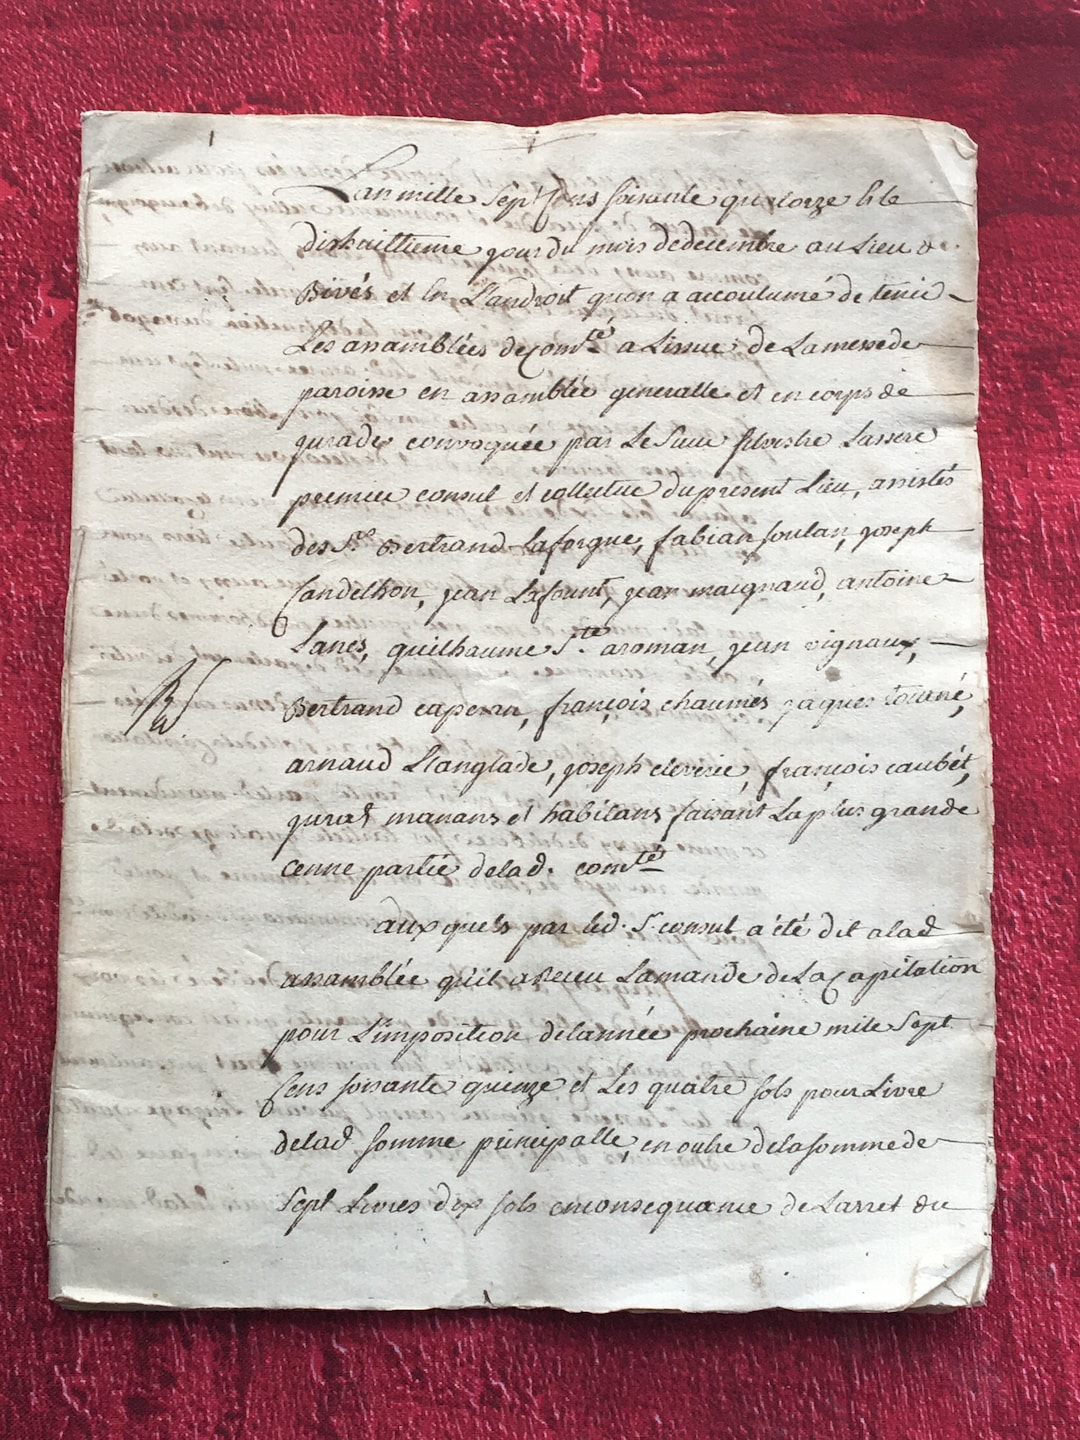 Lan mille Sept Cens soixante quatorze & le
dixhuittieme jour du mois de decembre au Lieu de
Bivés et en L'androit quon a accoutumé de tenir
Les assamblées de Comté a Lissue de La messe de
paroisse en assamblée generalle et en corps de
jurade convoquée par Le Sieur silvestre Lassere
premier consul et collecteur du present Lieu, assistés
des Srs Bertrand Laforgue, fabian soulan, joseph
Candelhon, jean Lafount, jean maignaud, antoine
Lanes, guilhaume Ste aroman, jean vignaux,
Bertrand caperan, françois chaumés jaques tourné,
arnaud Llanglade, joseph claverie, françois caubét,
jurats manans et habitans faisant La plus grande
cenne partie de lad. comté
auxquels par led. Sr consul a été dit a lad
assamblée qu'il a Receu La mande de La Capitation
pour L'imposition de lannée prochaine mile Sept
Cens soisante quinze et Les quatre sols pour Livre
de lad somme principalle, en outre de la somme de
Sept Livres dix sols en consequance de Larret du